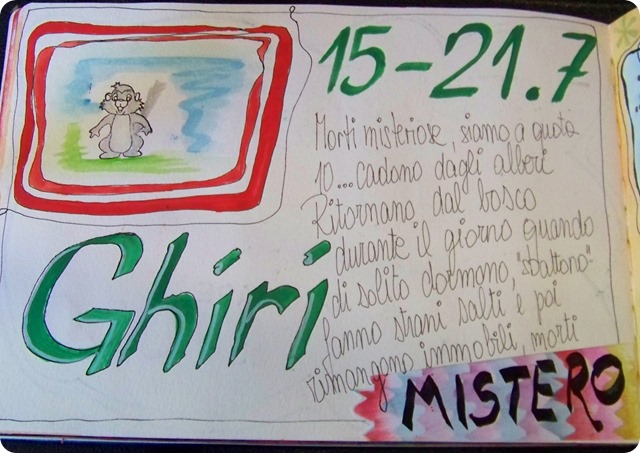 15-21.7
Morti misteriose, siamo a quota
10...cadono dagli alberi
Ritornano dal bosco
durante il giorno quando
di solito dormono, "sbattono"
fanno strani salti e poi
rimangono immobili, morti
Ghiri
MISTERO